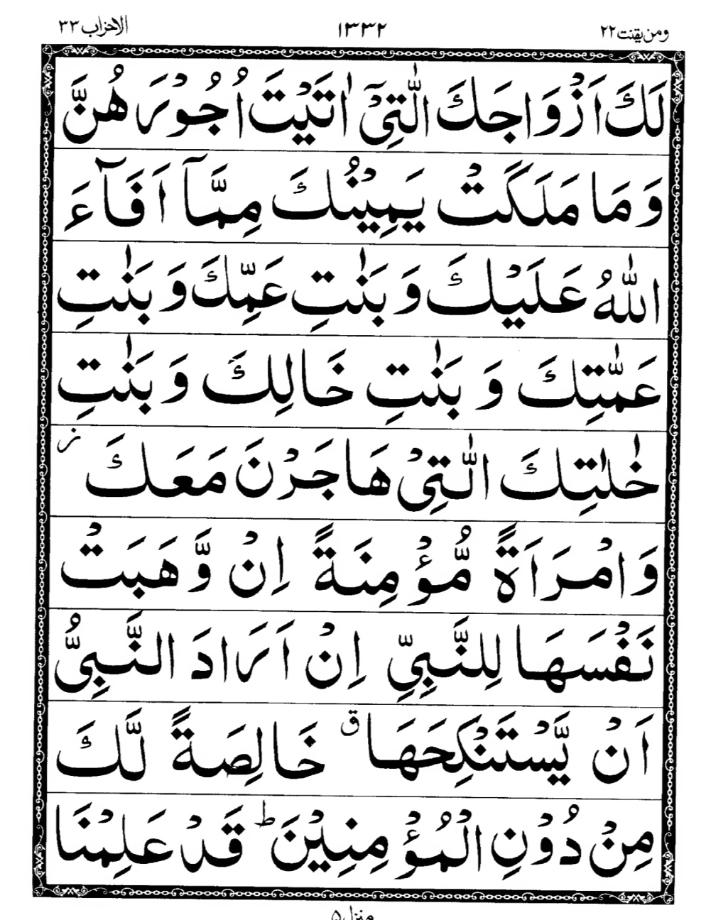 ومن یقنت ۲۲ ۱۳۳۲ الاحزاب ۳۳
لَكَ اَزْوَاجَكَ الّٰتِیْۤ اٰتَیْتَ اُجُوْرَهُنَّ
وَ مَا مَلَكَتْ یَمِیْنُكَ مِمَّاۤ اَفَآءَ
اللّٰهُ عَلَیْكَ وَ بَنٰتِ عَمِّكَ وَ بَنٰتِ
عَمّٰتِكَ وَ بَنٰتِ خَالِكَ وَ بَنٰتِ
خٰلٰتِكَ الّٰتِیْ هَاجَرْنَ مَعَكَ ز
وَ امْرَاَةً مُّؤْمِنَةً اِنْ وَّهَبَتْ
نَفْسَهَا لِلنَّبِیِّ اِنْ اَرَادَ النَّبِیُّ
اَنْ یَّسْتَنْكِحَهَا ق خَالِصَةً لَّكَ
مِنْ دُوْنِ الْمُؤْمِنِیْنَ ط قَدْ عَلِمْنَا
منزل ۵